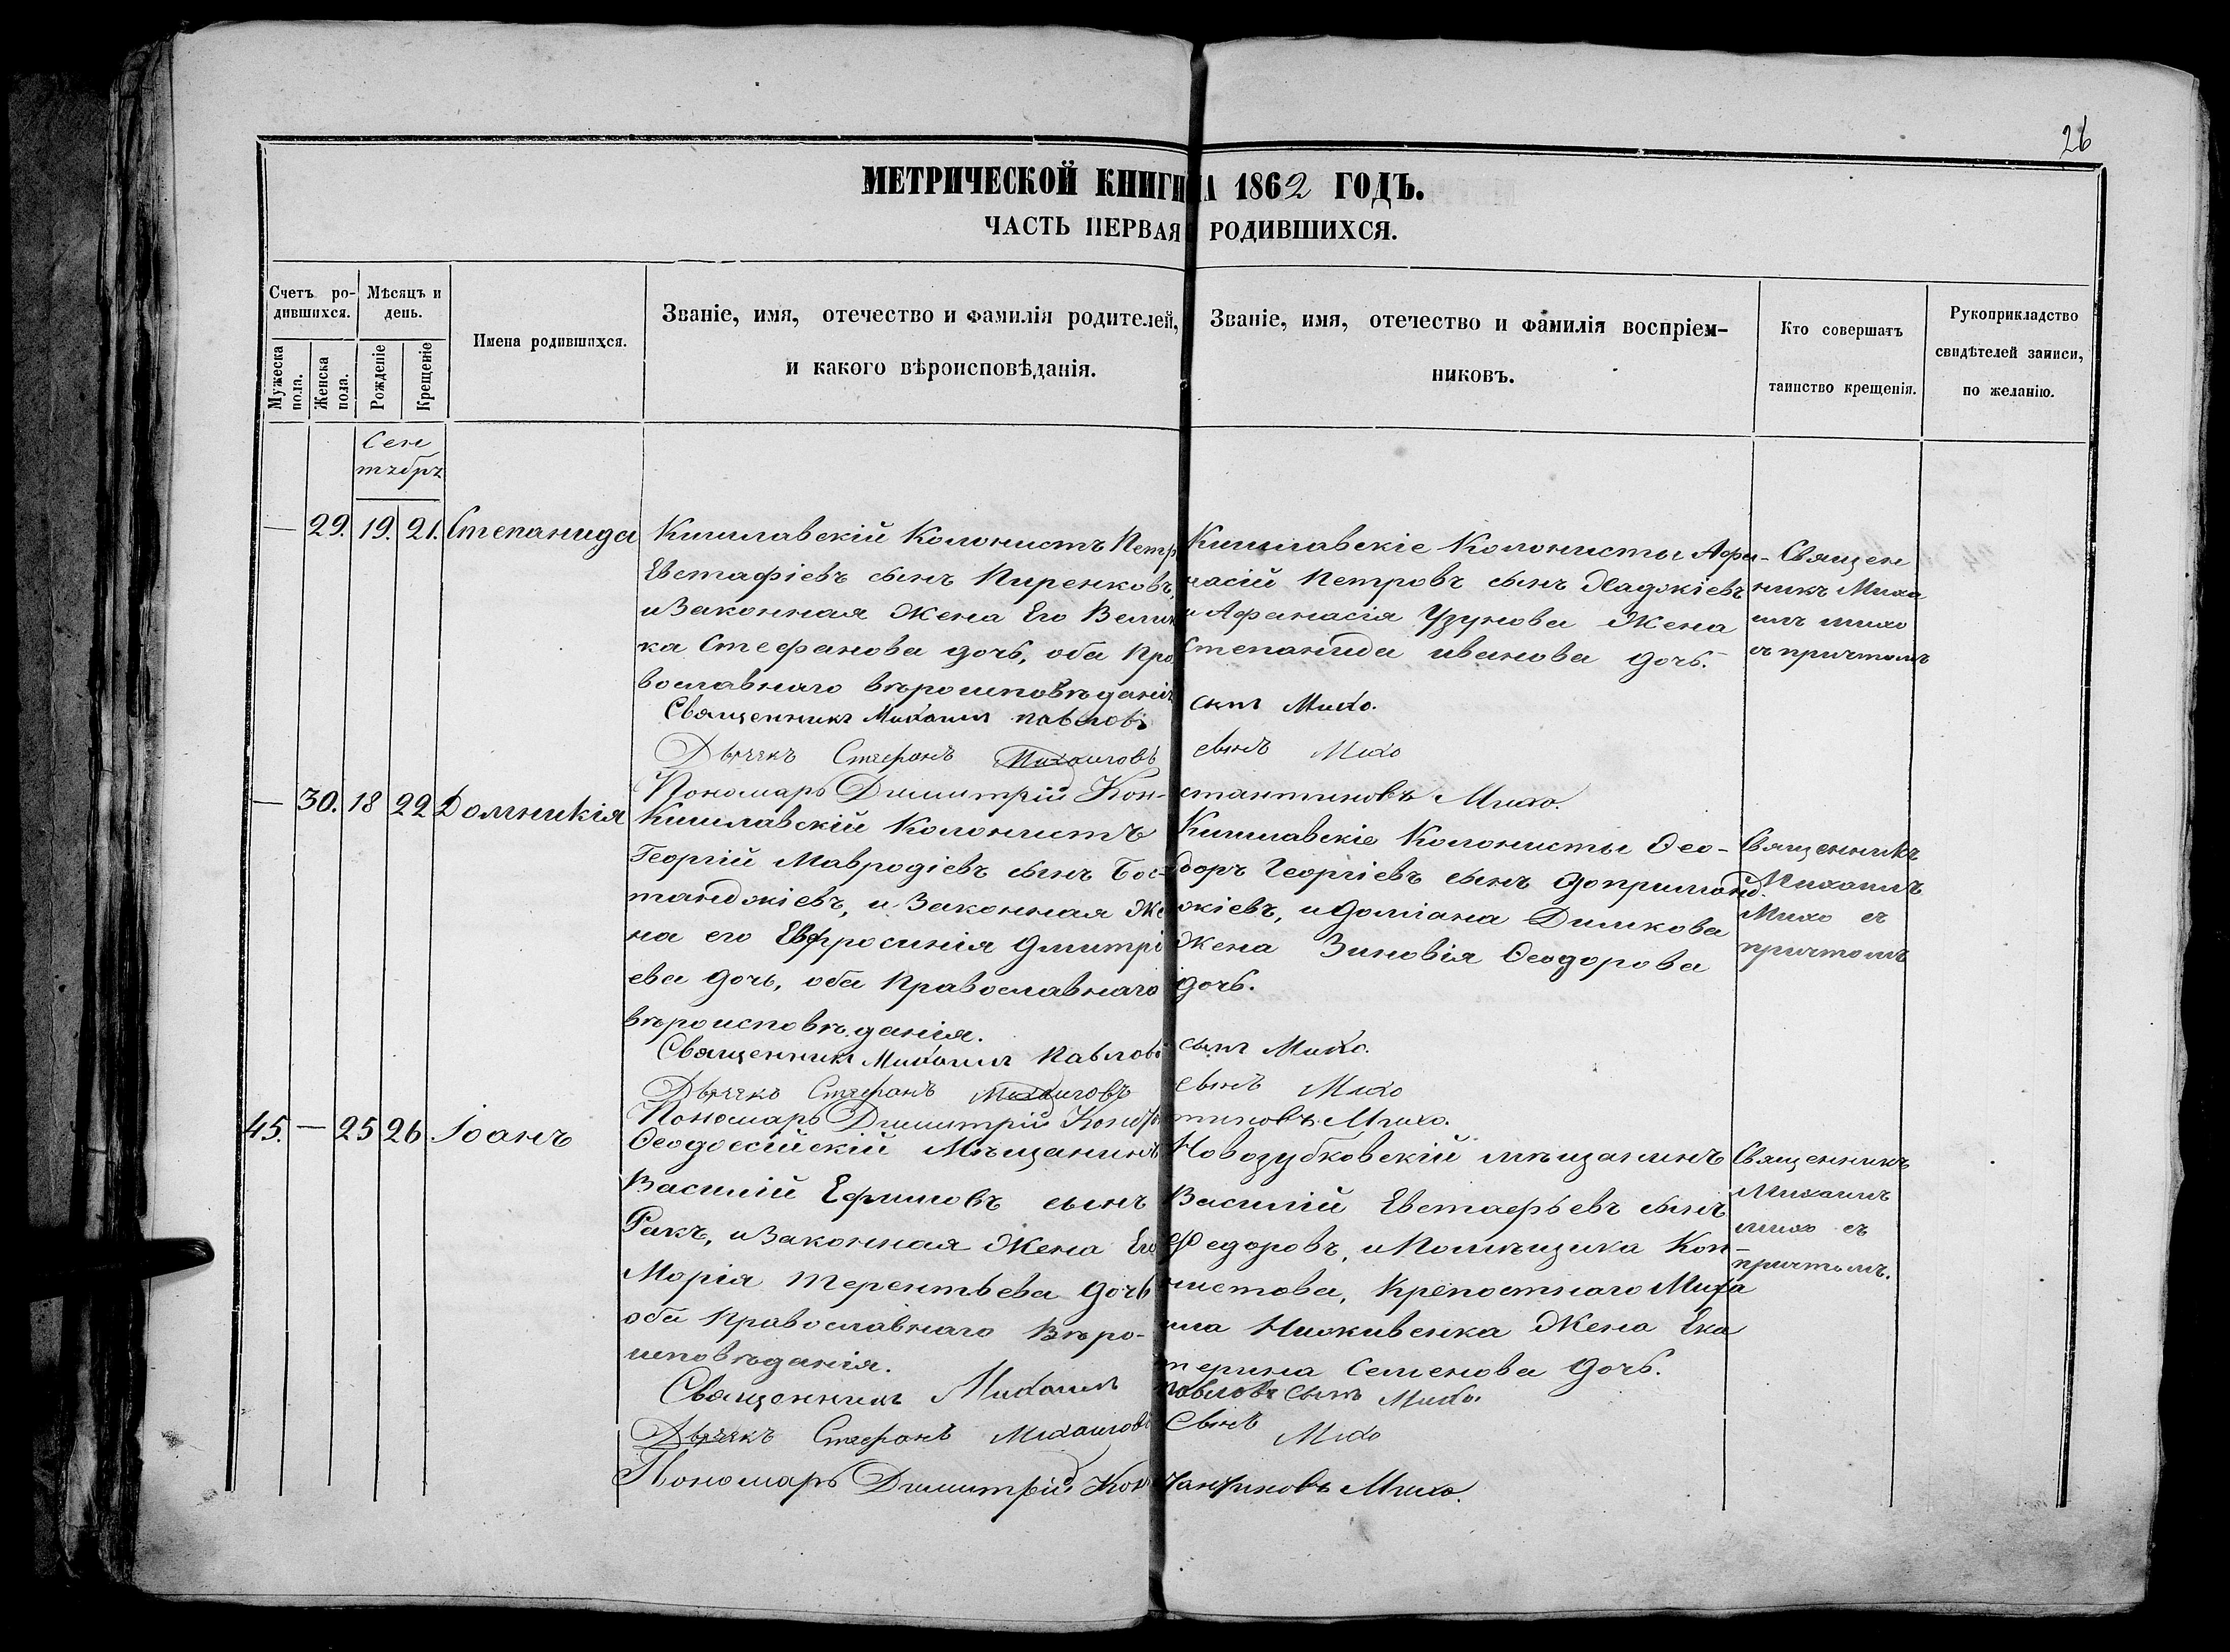 26
МЕТРИЧЕСКОЙ КНИГИ НА 1862 ГОДЪ.
ЧАСТЬ ПЕРВАЯ РОДИВШИХСЯ.
Счетъ родившихся.
Мужеска пола.
Женска пола.
Мѣсяцъ и день.
Рожденіе
Крещеніе
Имена родившихся.
Званіе, имя, отечество и фамилія родителей,
и какого вѣроисповѣданія.
Званіе, имя, отечество и фамилія воспріем-
никовъ.
Кто совершатъ
таинство крещенія.
Рукоприкладство
свидѣтелей записи,
по желанію.
Сен
тябрь
— 29. 19. 21. Степанида
Кишлавскій Колонистъ Петр
Евстафіевъ сынъ Пиренковъ,
и Законная Жена Его Велич
ка Стефанова дочь, оба Пра
вославнаго вѣроисповѣданія
Кишлавскіе Колонисты Афа-
насій Петровъ сынъ Хаджіевъ
и Афанасія Узунова Жена
Степанида иванова дочь.
Священ
никъ Миха
илъ михо
съ причтомъ
Священникъ Михаилъ Павловъ сынъ Михо.
Дьячекъ Стефанъ Михаиловъ сынъ Михо
Пономарь Димитрій Константиновъ Михо.
— 30. 18 22 Домникія
Кишлавскій Колонистъ
Георгій Мавродіевъ сынъ Бос-
танджіевъ, и Законная Же
на его Евфросинія Дмитрі
ева дочь, оба Православнаго
вѣроисповѣданія.
Кишлавскіе Колонисты Ѳео-
доръ Георгіевъ сынъ
жіевъ, и Доміана Димкова
Жена Зиновія Ѳеодорова
дочь.
Священникъ
Михаилъ
Михо съ
причтомъ
Священникъ Михаилъ Павловъ сынъ Михо.
Дьячекъ Стефанъ Михаиловъ сынъ Михо
Пономарь Димитрій Константиновъ Михо.
45. — 25 26 Іоанъ
Ѳеодосійскій Мѣщанинъ
Василій Ефимовъ сынъ
Ракъ, и Законная Жена Его
Марія Терентьева дочь
оба Православнаго Вѣро-
исповѣданія.
Новозубковскій мѣщанинъ
Василій Евстафьевъ сынъ
Федоровъ, и Помѣщика Кон-
нистова, Крепостнаго Миха
ила Жена Ека
терина Семенова дочь.
Священникъ
Михаилъ
михо съ
причтомъ.
Священникъ Михаилъ Павловъ сынъ Михо.
Дьячекъ Стефанъ Михаиловъ Сынъ Михо
Пономарь Димитрій Константиновъ Михо.